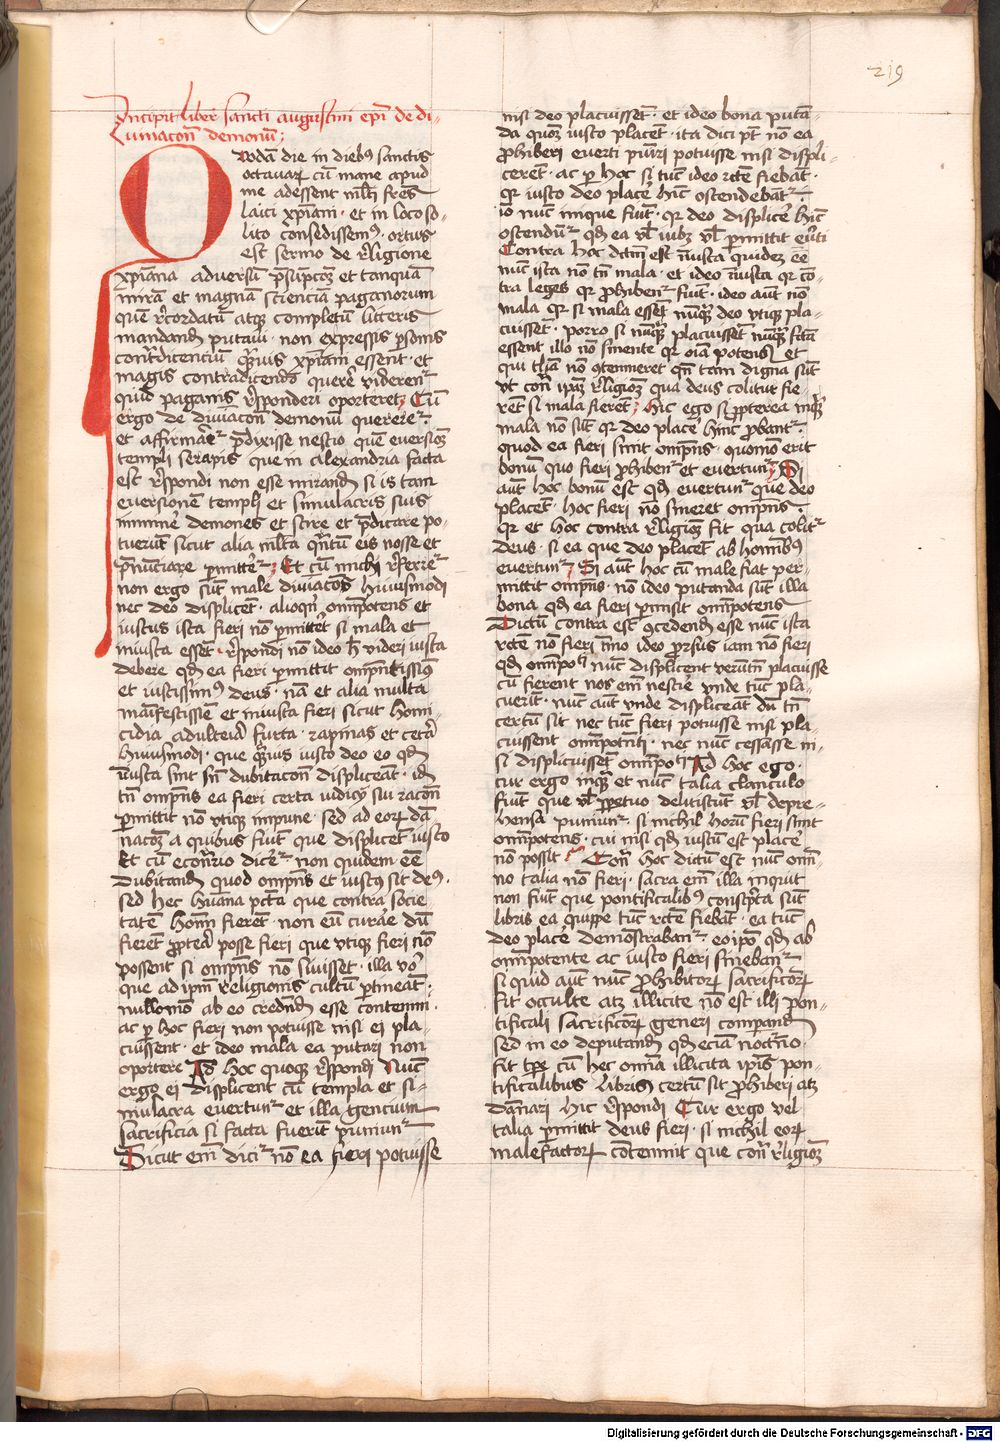 219
Incipit liber sancti augustini epi̅ de di-
uinacon̅ demonu̅
Quoda̅ die in dieb9 sanctis
octauar̅ cu̅ mane apud
me adessent ml̅ti fr̅es
laici xp̅iani · et in loco so-
lito consedissem9 · ortus
est sermo de r̅ligione
xp̅iana adversu̅ p̅su̅pcoȝ et tanquā
mirā et magnā scienciā paganorum
quē r̅cordatu̅ atqȝ completu̅ litteris
mandand̅ putaui · non expressis p̅sonis
cont̅dicenciu̅ qr̅ius xp̅iani essent · et
magis contradicendo querer̅ videren̅t
quid paganis r̅sponderi oporteret Cu̅
ergo de diuīacon̅ demonu̅ querere̅t
et affirmar̅e̅t p̅dixisse nescio quē euersioȝ
templi serapis que in alexandria facta
est r̅spondi non esse mirand̅ si istam
euersionē templi et simulacris suis
iminer̅e demones et scire et p̅dicare po-
tueru̅t sicut alia ml̅ta q̅ntu̅ eis nosse et
p̅nu̅ciare p̅mitte̅t Et cu̅ michi r̅ferre̅t
non ergo su̅t male diuīacoēs huiusmodi
nec deo displicent · alioqn̅ om̅ipotens et
iustus ista fieri nō p̅mittet si mala et
iniusta essēt · r̅spondi nō ideo h̅ videri iusta
debere qd̅ ea fieri p̅mittit om̅ipo̅tissim9
et iustissim9 deus · nā et alia multa
maīfestissie̅ et iniusta fieri sicut homi
cidia adulteria furta · rapinas et cetera
huiusmodi · que q̅uis iusto deo eo qd̅
iniusta sint sn̅ dubitacōn displiceāt · id̅
tn̅ omp̅ns ea fieri certa iudicij sui racōn
p̅mittit nō vtiqȝ impune · sed ad eor̅ dā
nacoȝ a quibus fiūt que displicēt iusto
Et cu̅ econr̅io dice̅t non quidem ēē
dubitand̅ quod omp̅ns et iustus sit de9 ·
sed hec hūana pctā que contra socie
tatē homi̅ fierēt · non eu̅ curāe du̅
fierēt p̅pter̅a posse fieri que vtiqȝ fieri nō
possent si omp̅ns nō siuisset · illa vo̅
que ad ip̅m religionis cultu̅ p̅tineāt ·
nullomō ab eo crednd̅ esse contemni ·
ac p̅ hoc fieri non potuisse nisi ei pla-
cuissent · et ideo mala ea putari non
oportere Ad hoc quoqȝ r̅spondi Nu̅c
ergo ei displicent cu̅ templa et si-
mulacra euertun̅t et illa gencium
sacrificia si facta fueri̅t puniun̅t
Sicut em̅ dici̅t nō ea fieri potuisse
nisi deo placuissēt · et ideo bona putā-
da quoȝ iusto placēt · ita dici pt̅ nō ea
p̅hiberi euerti puniri potuisse nisi displi-
cerēt · ac p̅ hoc si tu̅c ideo rc̅te fiebāt ·
qr iusto deo placer̅e hi̅c ostendebān̅t
iō nu̅c iniqȝe fiūt · qr deo displicer̅e hi̅c
ostendu̅t qd̅ ea vl̅ iubȝ vl̅ p̅mittit eu̅ti
Contra hoc dc̅m est n̅iusta quideȝ ēē
nu̅c ista nō tn̅ mala · et ideo n̅iusta qr cō-
tra leges qr p̅hiben̅t fiūt · ideo aūt nō
mala qr si mala essēt nu̅qȝ deo vtiqȝ pla-
cuissēt · porro si nu̅qȝ placuissēt nu̅qȝ fc̅a
essent illo nō sinente qr oi̅a potens̅ et
qui tl̅ia nō 9tenneret qn̅ tam digna su̅t
vt con̅ ip̅aȝ r̅ligioȝ qua deus colitur fie-
rēt si mala fierēt Hic ego si p̅pterea inq̅
mala nō su̅t qr deo placer̅e hi̅c p̅bant̅
quod ea fieri sinit omp̅ns · quomō erit
bonu̅ quo fieri p̅hiben̅t et euertun̅t Si
aūt hoc bonu̅ est qd̅ euertun̅t que deo
placēt · hoc fieri nō sineret omp̅ns ·
qr et hoc contra r̅ligioȝ fit qua coli̅t
deus · si ea que deo placēt ab homīb9
euertun̅t Si aūt hoc cu̅ male fiat per-
mittit omp̅ns · nō ideo putanda su̅t illa
bona qd̅ ea fieri p̅misit om̅ipotens
Dictu̅ contra est 9cedend̅ esse nu̅c ista
rc̅te nō fieri i̅mo ideo p̅rsus iam nō fieri
qd̅ om̅ipoti̅ nu̅c displicent verūtn̅ placuisse
cu̅ fierent nos em̅ nescire vnde tu̅c pla-
cuerīt · nu̅c aūt vnde displiceant du̅ tn̅
certu̅ sit nec tu̅c fieri potuisse nisi pla-
cuissent om̅ipotn̅ti · nec nu̅c cessasse ni-
si displicuissēt om̅ipoti̅ Ad hoc ego ·
cur ergo inq̅ et nu̅c talia clanculo
fiūt que vl̅ p̅petuo delitistu̅t vl̅ depre-
hensa puniun̅t si nichil horu̅ fieri sinit
om̅ipotens · cui nisi qd̅ iustu̅ est placer̅e
nō possit Con̅ hoc dictu̅ est nu̅c omī-
no talia nō fieri · sacra em̅ illa inquit
non fiūt que pontificalib9 constp̅ta su̅t
libris ea quippe tu̅c rc̅te fiebāt · ea tu̅c
deo placer̅e demōstraban̅t eoip̅o qd̅ ab
om̅ipotente ac iusto fieri sineban̅t
si quid aūt nu̅c p̅hibitor̅ sacrificor̅
fit occulte atȝ illicite nō est illi pon-
tificali sacrificor̅ generi compand̅
sed in eo deputand̅ qd̅ eciā noct̅nio
fit tp̅e cu̅ hec omīa illicita ip̅is pon-
tificalibus libris certu̅ sit p̅hiberi atȝ
dānari hic r̅spondi Cur ergo vel
talia p̅mittit deus fieri · si nichil eor̅
malefactor̅ cōtemnit que con̅ r̅ligioȝ
Digitalisierung gefördert durch die Deutsche Forschungsgemeinschaft - DFG